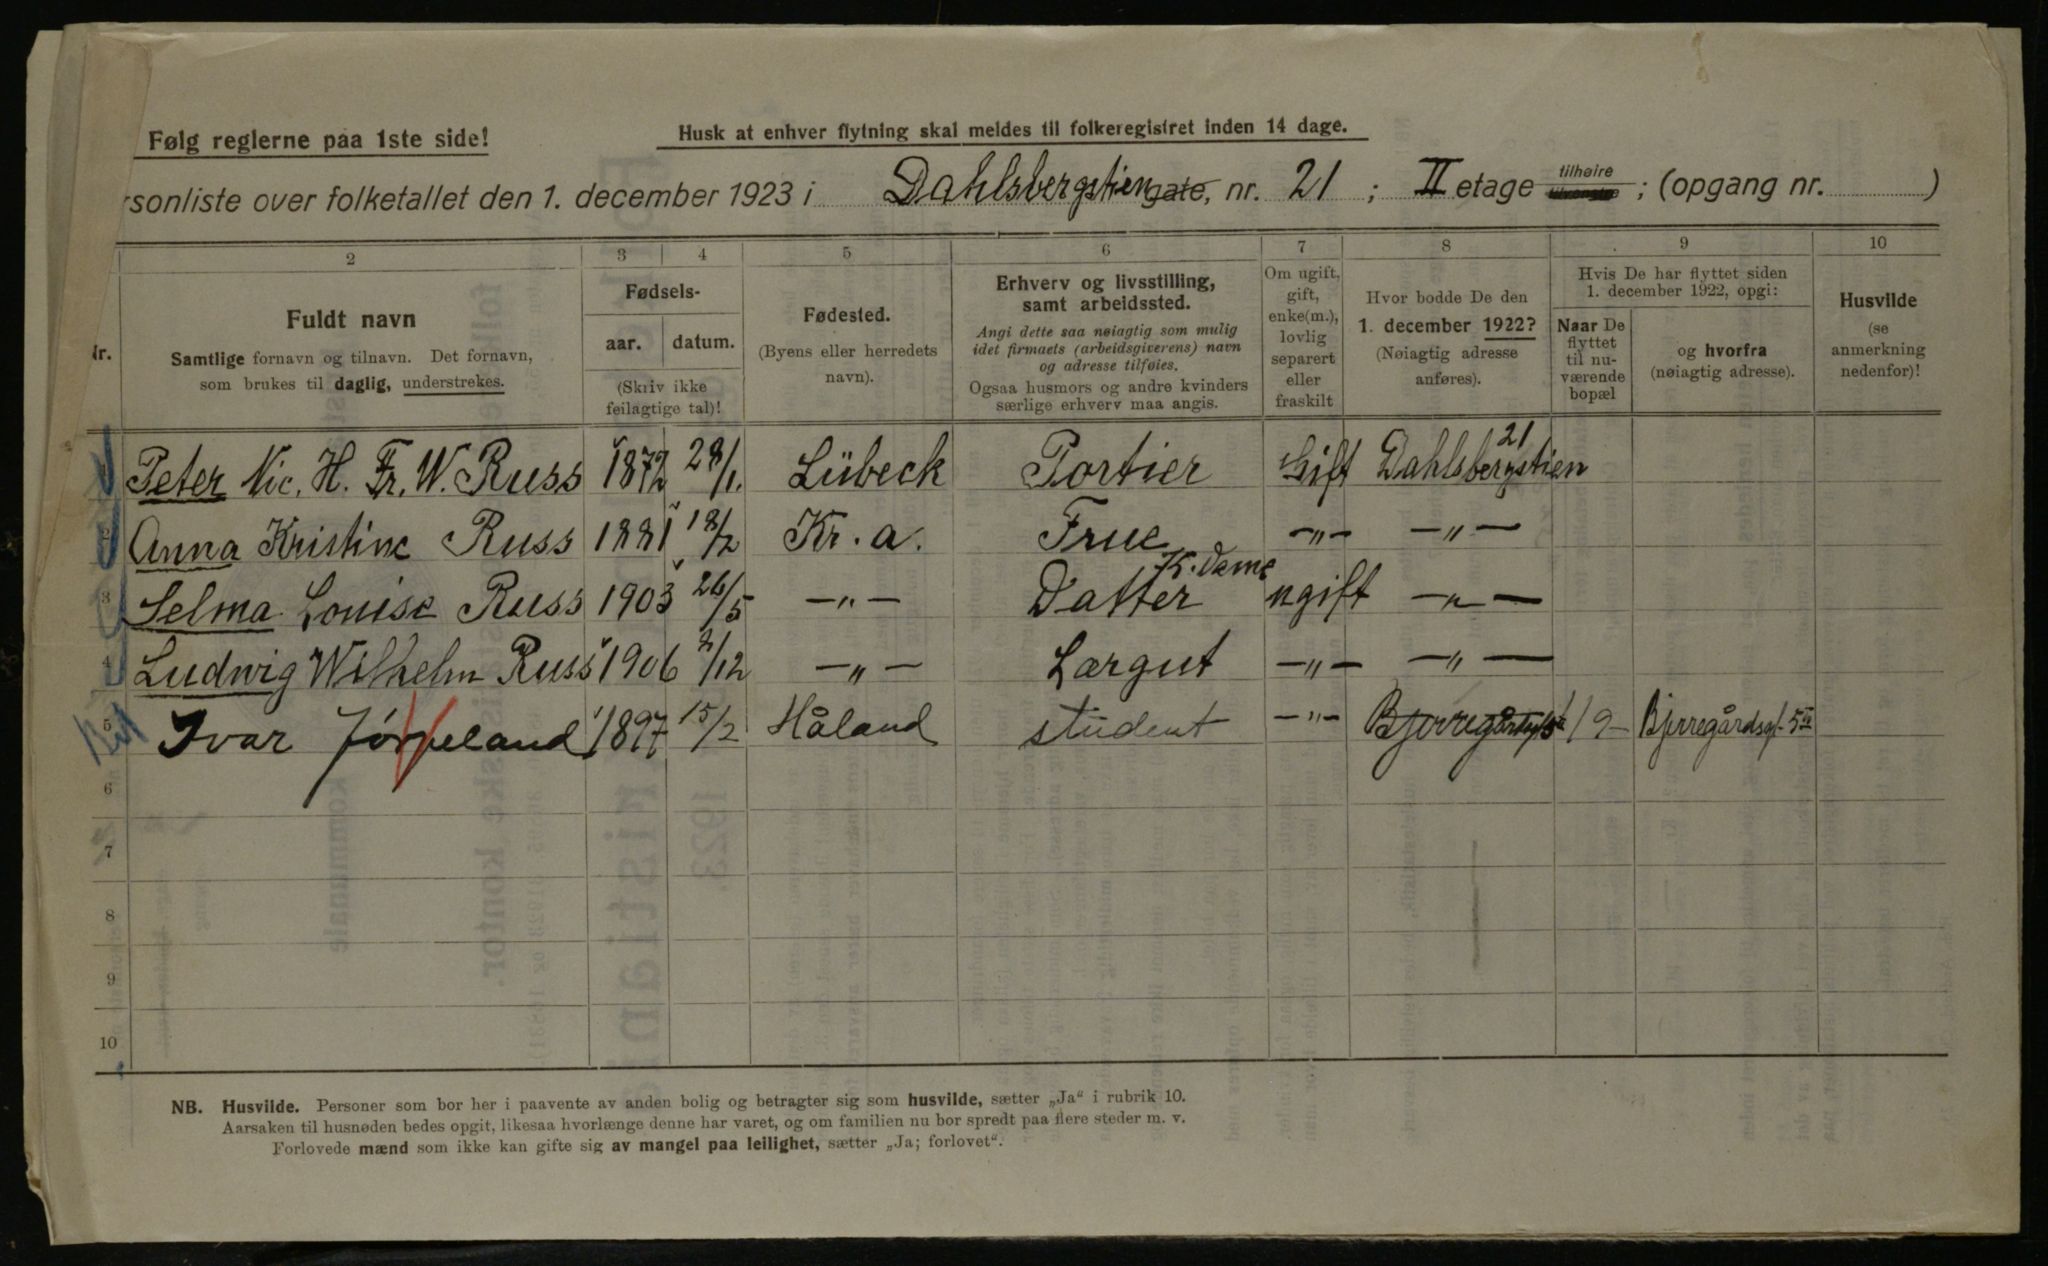 Følg reglerne paa 1ste side!
Husk at enhver flytning skal meldes til folkeregistret inden 14 dage.
rsonliste over folketallet den 1. december 1923 i Dahlsbergstien gate, nr. 21 ; II etage tilhøire tilvenstre ; (opgang nr. )
2 3 4 5 6 7 8 9 10
Nr.
Fuldt navn
Samtlige fornavn og tilnavn. Det fornavn,
som brukes til daglig, understrekes.
Fødsels-
aar. datum.
(Skriv ikke
feilagtige tal)!
Fødested.
(Byens eller herredets
navn).
Erhverv og livsstilling,
samt arbeidssted.
Angi dette saa nøiagtig som mulig
idet firmaets (arbeidsgiverens) navn
og adresse tilføies.
Ogsaa husmors og andre kvinders
særlige erhverv maa angis.
Om ugift,
gift,
enke(m.),
lovlig
separert
eller
fraskilt
Hvor bodde De den
1. december 1922?
(Nøiagtig adresse
anføres).
Hvis De har flyttet siden
1. december 1922, opgi:
Naar De
flyttet
til nu-
værende
bopæl
og hvorfra
(nøiagtig adresse).
Husvilde
(se
anmerkning
nedenfor)!
Peter Nic. H. Fr. W. Russ 1872 28/1. Lübeck Portier Gift Dahlsbergstien 21
2 Anna Kristine Russ 1881 18/2 Kr. a. Frue —„— —„—
3 Selma Louise Russ 1903 26/5 —„— Datter K. Dame ugift —„—
4 Ludwig Wilhelm Russ 1906 8/12 —„— Lærgut —„— —„—
5 Ivar Jørpeland 1897 15/2 Håland student —„— 1/9 Bjerregårdsgt. 5
6
7
8
9
10
NB. Husvilde. Personer som bor her i paavente av anden bolig og betragter sig som husvilde, sætter „Ja“ i rubrik 10.
Aarsaken til husnøden bedes opgit, likesaa hvorlænge denne har varet, og om familien nu bor spredt paa flere steder m. v.
Forlovede mænd som ikke kan gifte sig av mangel paa leilighet, sætter „Ja; forlovet“.